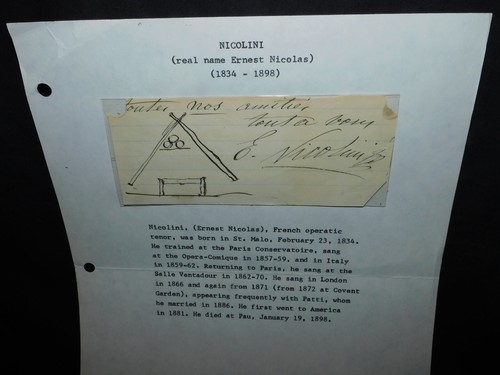 NICOLINI
(real name Ernest Nicolas)
(1834 - 1898)
toutes nos amitiés
tout à vous
E. Nicolini
Nicolini, (Ernest Nicolas), French operatic
tenor, was born in St. Malo, February 23, 1834.
He trained at the Paris Conservatoire, sang
at the Opera-Comique in 1857-59, and in Italy
in 1859-62. Returning to Paris, he sang at the
Salle Ventadour in 1862-70. He sang in London
in 1866 and again from 1871 (from 1872 at Covent
Garden), appearing frequently with Patti, whom
he married in 1886. He first went to America
in 1881. He died at Pau, January 19, 1898.